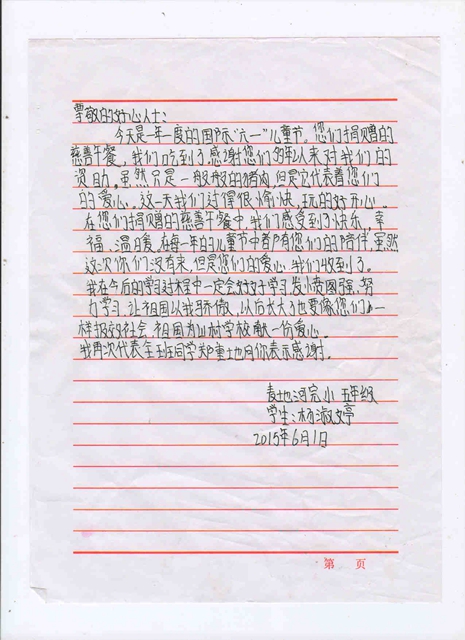 尊敬的好心人士：
今天是一年一度的国际"六一"儿童节。您们捐赠的
慈善午餐，我们吃到了，感谢您们多年以来对我们的
资助。虽然只是一般般的猪肉，但是它代表着您们
的爱心。这一天我们过得很愉快，玩的好开心。
在您们捐赠的慈善午餐中，我们感受到了快乐，幸
福、温暖，在每一年的儿童节中都有您们的陪伴，虽然
这次你们没有来，但是您们的爱心，我们收到了。
我在今后的学习对程中一定会好好学习，发奋图强，努
力学习，让祖国以我骄傲，以后长大了也要像您们一
样报效社会、祖国为山村学校献一份爱心。
我再次代表全班同学郑重地向你表示感谢。
麦地河完小 五年级
学生：杨淑婷
2015年6月1日
第 页